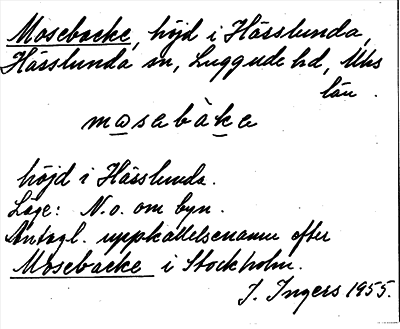 Mosebacke, höjd i Hässlunda,
Hässlunda sn, Luggude hd, Mhs
län.
mosebàke
höjd i Hässlunda.
Läge: N.o. om byn.
Antagl. uppkallelsenamn efter
Mosebacke i Stockholm.
J. Ingers 1955.